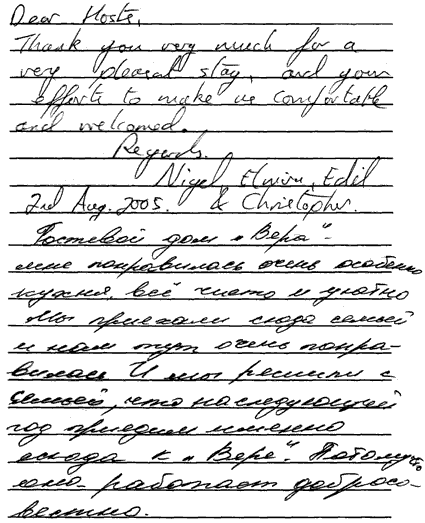 Dear Hosts,
Thank you very much for a
very pleasant stay, and your
efforts to make us comfortable
and welcomed.
Regards.
Nigel, Elwira, Edil
2nd Aug. 2005. & Christopher.
Гостевой дом "Вера"-
мне понравилась очень особенно
кухня, всё чисто и уютно
Мы приехали сюда семьёй
и нам тут очень понра-
вилась И мы решили с
семьёй, что на следующий
год приедим именно
сюда к "Вере". Потому что
она работает добросо-
вестно.